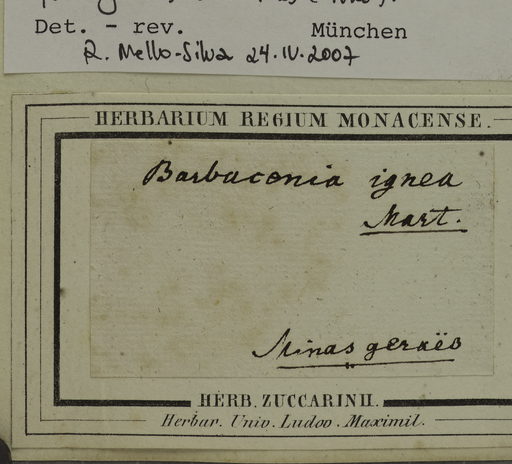 Det. - rev. München
R. Mello-Silva 24.IV.2007
HERBARIUM REGIUM MONACENSE.
Barbacenia ignea
Mart.
Minas geraës
HERB. ZUCCARINII.
Herbar. Univ. Ludov. Maximil.